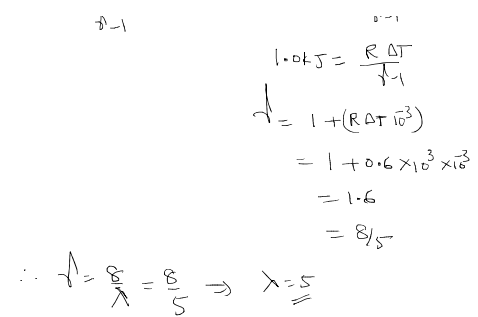 γ-1
1.0kJ = R ΔT / γ-1
γ = 1 + (R ΔT 10^-3)
= 1 + 0.6 × 10^3 × 10^-3
= 1.6
= 8/5
∴ γ = 8/λ = 8/5 ⇒ λ = 5